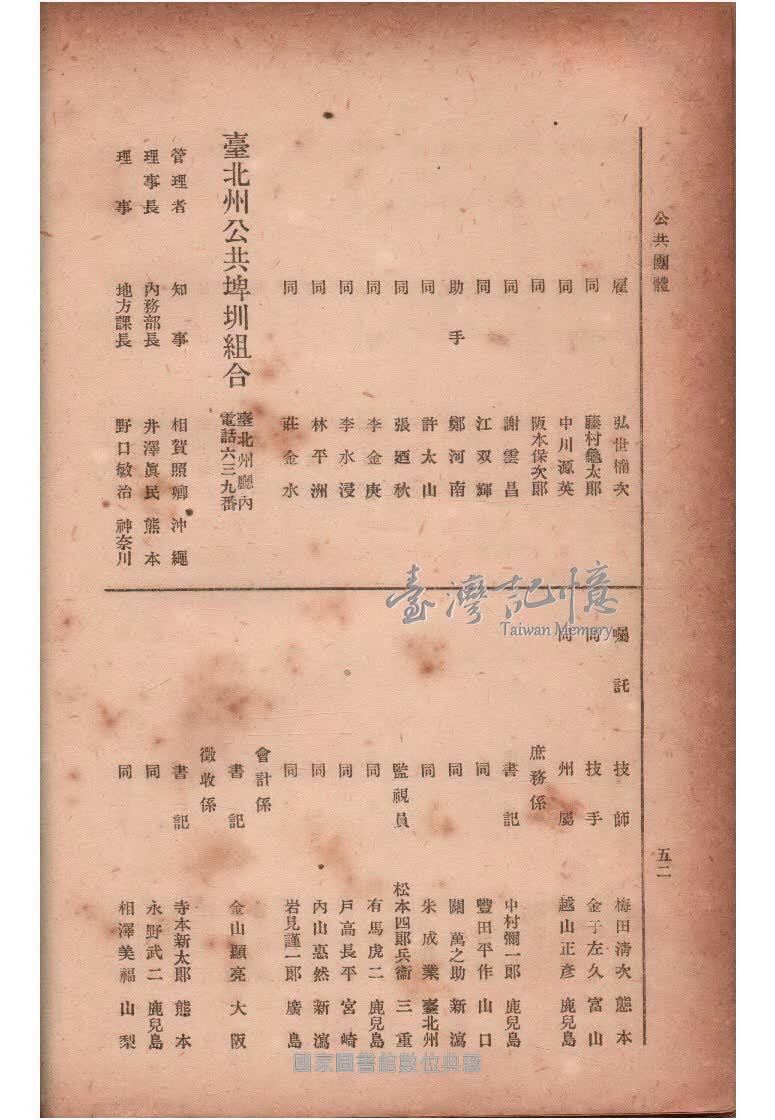 公共團體
五二
雇 弘世楠次
同 藤村龜太郎
同 中川源英
同 阪本保次郎
同 謝雲昌
同 江双輝
助手 鄭河南
同 許太山
同 張廼秋
同 李金庚
同 李水浸
同 林平洲
同 莊金水
臺北州公共埤圳組合 臺北州廳內 電話六三九番
管理者 知事 相賀照鄉 沖繩
理事長 內務部長 井澤眞民 熊本
理事 地方課長 野口敏治 神奈川
囑託 技師 梅田清次 熊本
同 技手 金子左久 富山
同 州屬 越山正彥 鹿兒島
庶務係
書記 中村彌一郎 鹿兒島
同 豐田平作 山口
同 關萬之助 新瀉
同 朱成業 臺北州
監視員 松本四郎兵衞 三重
同 有馬虎二 鹿兒島
同 戶高長平 宮崎
同 內山惠然 新瀉
同 岩見謹一郎 廣島
會計係
書記 金山顯亮 大阪
徵收係
書記 寺本新太郎 熊本
同 永野武二 鹿兒島
同 相澤美福 山梨
臺灣記憶
Taiwan Memory
國家圖書館數位典藏